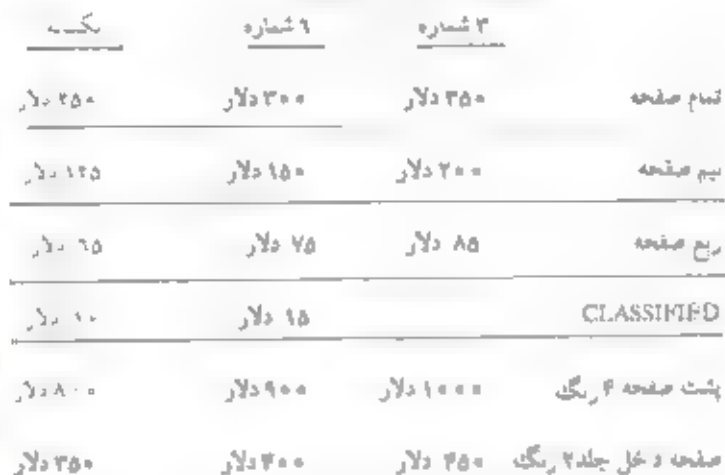 ۳ شماره ۶ شماره
تمام صفحه ۳۵۰ دلار ۳۰۰ دلار ۲۵۰ دلار
نیم صفحه ۲۰۰ دلار ۱۵۰ دلار ۱۲۵ دلار
ربع صفحه ۸۵ دلار ۷۵ دلار ۶۵ دلار
CLASSIFIED ۱۵ دلار ۱۰ دلار
پشت صفحه ۴ رنگ ۱۰۰۰ دلار ۹۰۰ دلار ۸۰۰ دلار
صفحه داخل جلد ۲ رنگ ۴۵۰ دلار ۴۰۰ دلار ۳۵۰ دلار